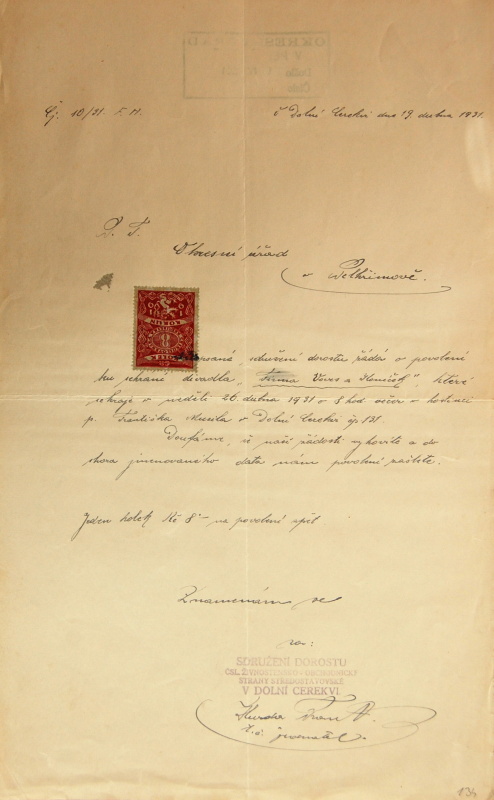 OKRESNÍ ÚŘAD
Čj. 10/31 F. H.
v Dolní Cerekvi dne 19 dubna 1931.
P. T.
Okresní úřad
v Pelhřimově.
KOLEK
8
sdružení dorostu žádá o povolení
ku sehrání divadla „Firma Voves a Koníček", které
sehraje v neděli 26 dubna 1931 v 8 hod. večer v hostinci
p. Františka v Dolní Cerekvi čp 131.
Doufáme, že naší žádosti vyhovíte a do
shora jmenovaného data nám povolení zašlete.
Jeden kolek Kč 8·– na povolení zpět
Znamenám se
za:
SDRUŽENÍ DOROSTU
ČSL. ŽIVNOSTENSKO-OBCHODNICKÉ
STRANY STŘEDOSTAVOVSKÉ
V DOLNÍ CEREKVI.
t. č. jednatel.
134